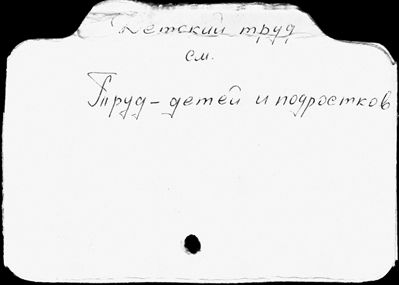 Детский труд
см.
Труд - детей и подростков